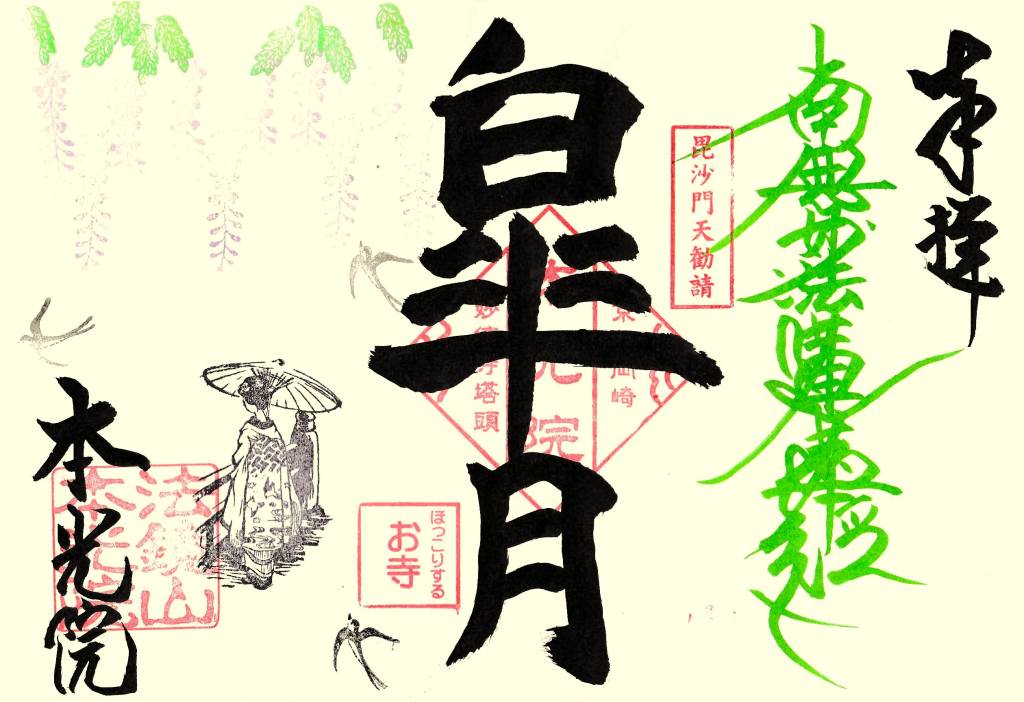 奉拝
南無妙法蓮華経
毘沙門天勧請
皐月
京都岡崎
本光院
妙傳寺塔頭
ほっこりする
お寺
本光院
法鏡山
本光院